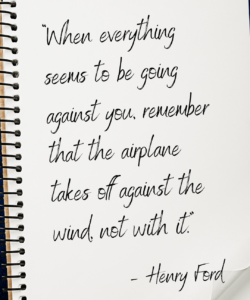 "When everything
seems to be going
against you, remember
that the airplane
takes off against the
wind, not with it."
- Henry Ford